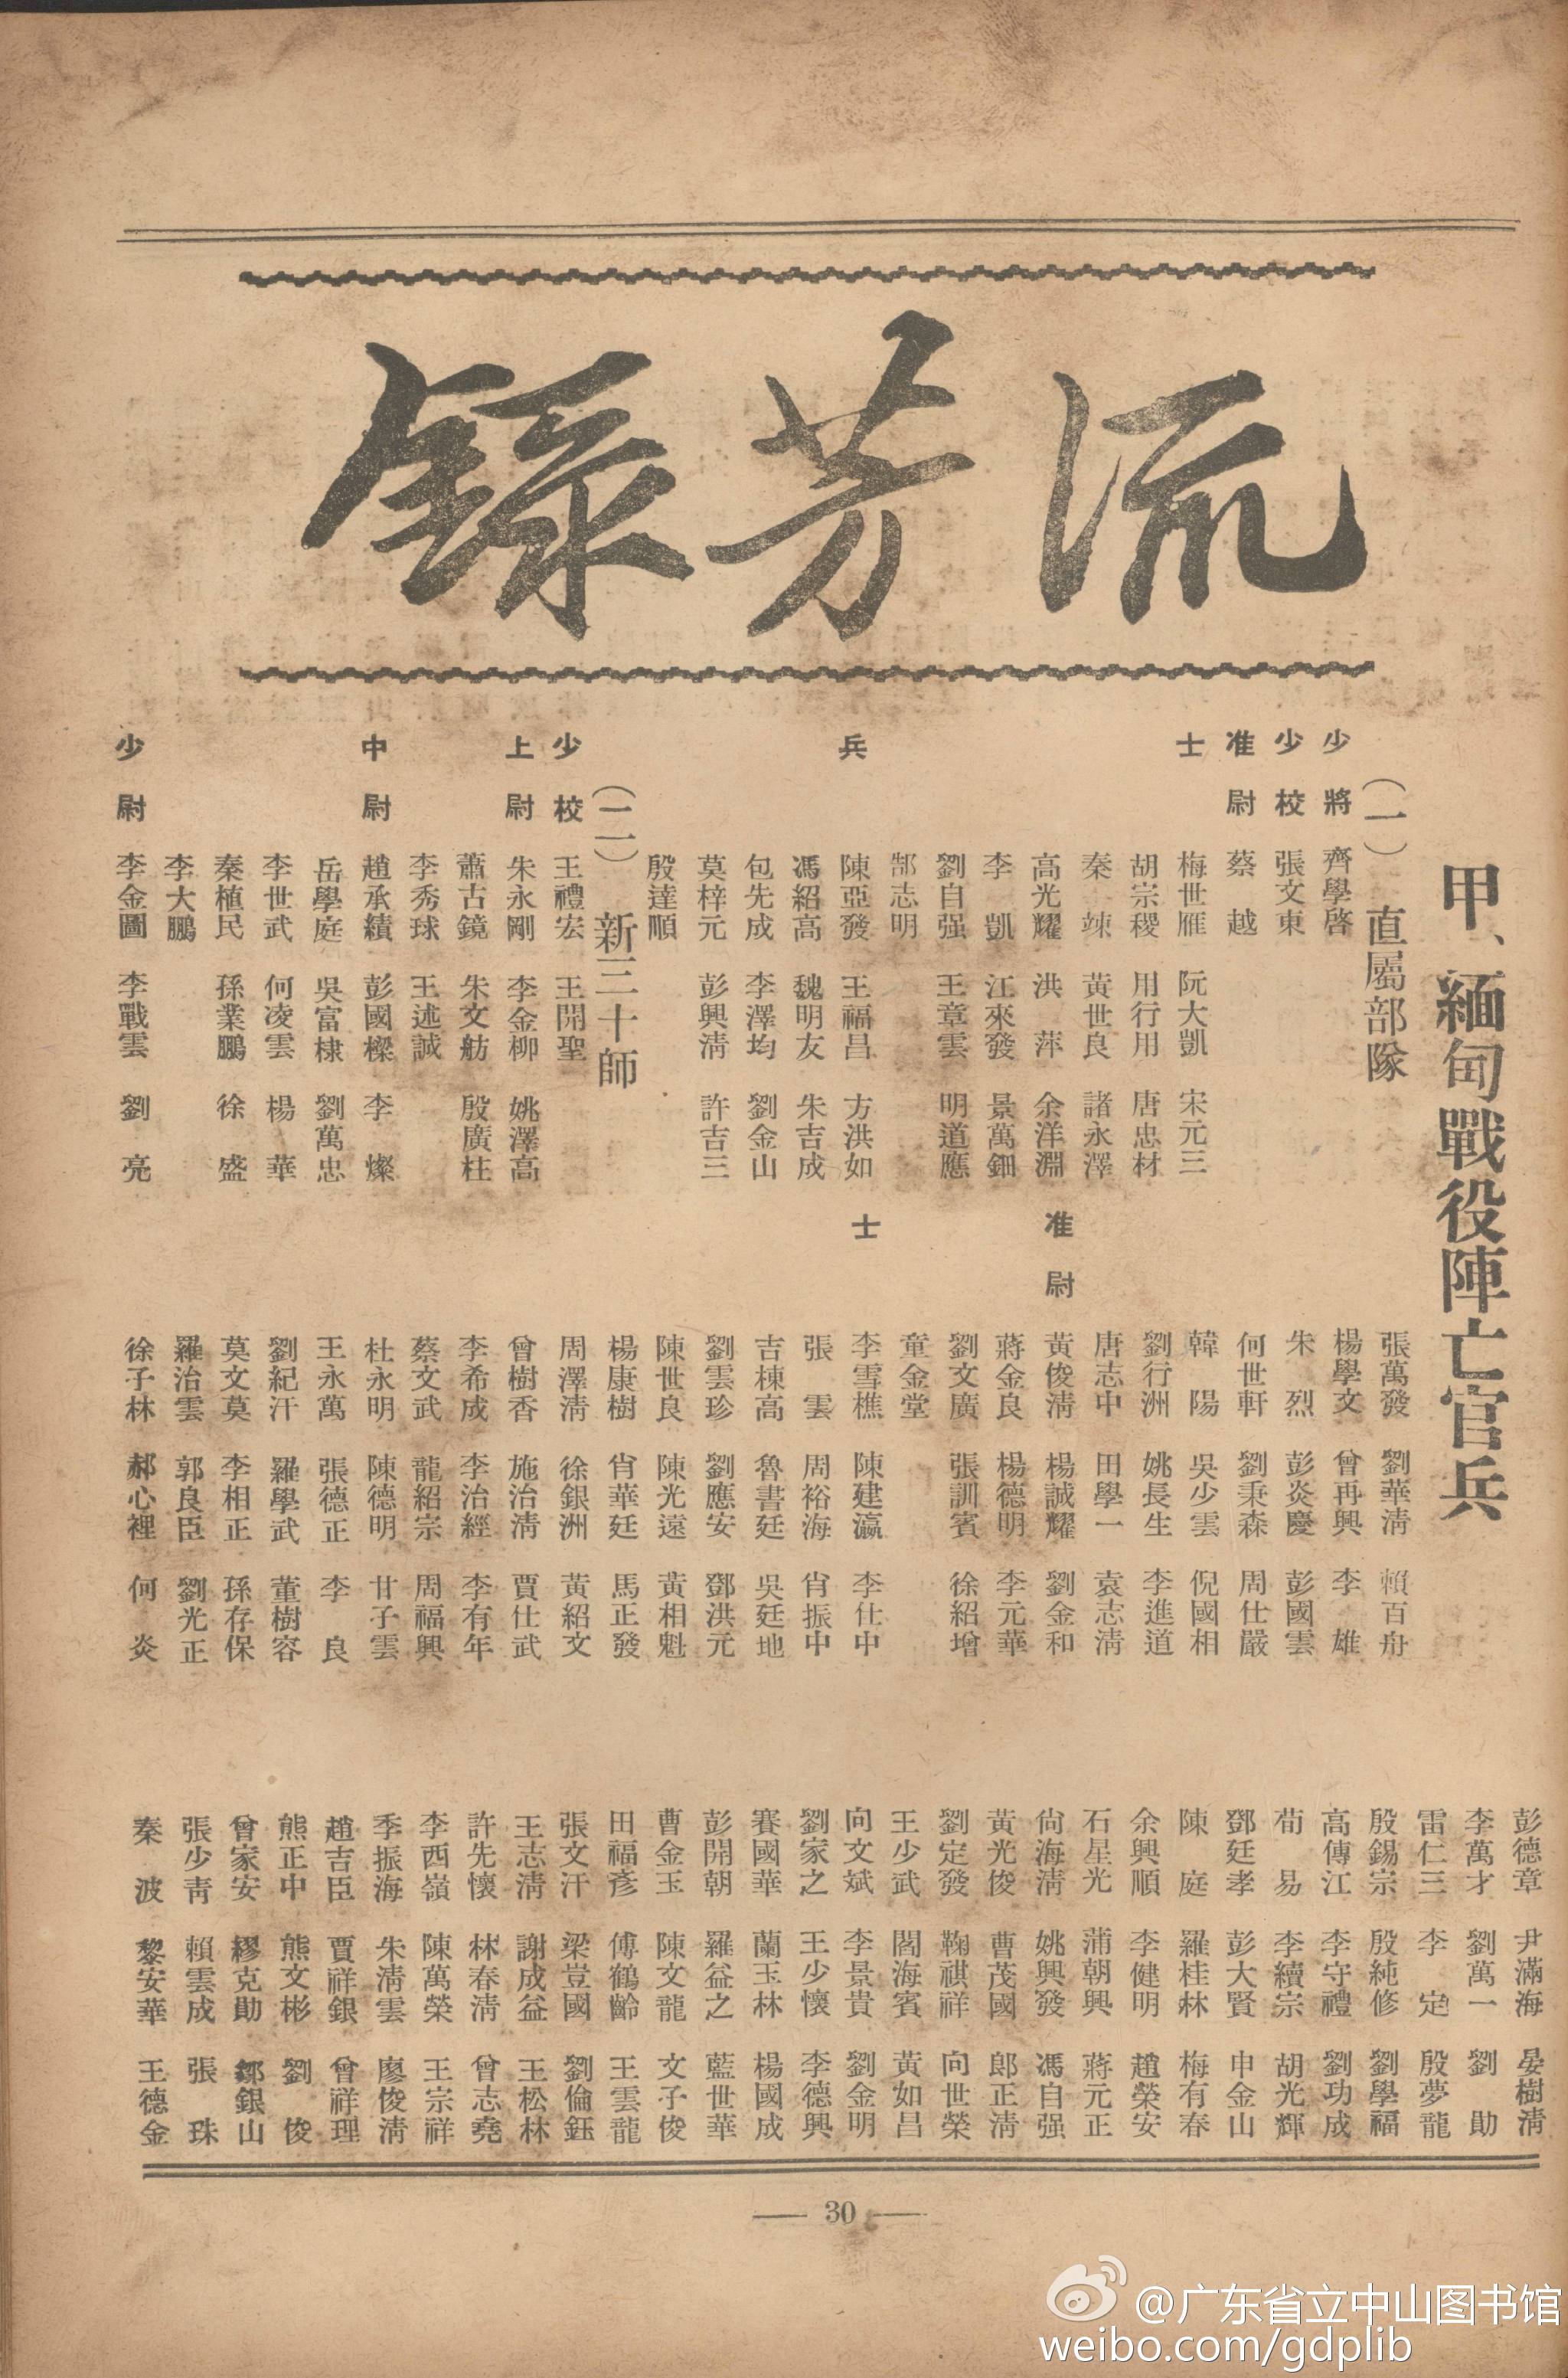 流芳錄
甲、緬甸戰役陣亡官兵
（一）直屬部隊
少將 齊學啓
少校 張文東
准尉 蔡越
士 梅世雁 阮大凱 宋元三
胡宗稷 用行用 唐忠材
秦竦 黃世良 諸永澤
高光耀 洪萍 余洋淵
李凱 江來發 景萬鈿
劉自强 王章雲 明道應
郜志明
兵 陳亞發 王福昌 方洪如
馮紹高 魏明友 朱吉成
包先成 李澤均 劉金山
莫梓元 彭興淸 許吉三
殷達順
（二）新三十師
少校 王禮宏 王開聖
上尉 朱永剛 李金柳 姚澤高
蕭古鏡 朱文舫 殷廣柱
李秀球 王述誠
中尉 趙承績 彭國樑 李燦
岳學庭 吳富棣 劉萬忠
李世武 何凌雲 楊華
秦植民 孫業鵬 徐盛
李大鵬
少尉 李金圖 李戰雲 劉亮
張萬發 劉華淸 賴百舟
楊學文 曾再興 李雄
朱烈 彭炎慶 彭國雲
何世軒 劉秉森 周仕嚴
韓陽 吳少雲 倪國相
劉行洲 姚長生 李進道
唐志中 田學一 袁志淸
准尉 黃俊淸 楊誠耀 劉金和
蔣金良 楊德明 李元華
劉文廣 張訓賓 徐紹增
童金堂
士 李雪樵 陳建瀛 李仕中
張雲 周裕海 肖振中
吉棟高 魯書廷 吳廷地
劉雲珍 劉應安 鄧洪元
陳世良 陳光遠 黃相魁
楊康樹 肖華廷 馬正發
周澤淸 徐銀洲 黃紹文
曾樹香 施治淸 賈仕武
李希成 李治經 李有年
蔡文武 龍紹宗 周福興
杜永明 陳德明 甘子雲
王永萬 張德正 李良
劉紀汗 羅學武 董樹容
莫文莫 李相正 孫存保
羅治雲 郭良臣 劉光正
徐子林 郝心裡 何炎
彭德章 尹滿海 晏樹淸
李萬才 劉萬一 劉勛
雷仁三 李定 殷夢龍
殷錫宗 殷純修 劉學福
高傳江 李守禮 劉功成
荀易 李續宗 胡光輝
鄧廷孝 彭大賢 申金山
陳庭 羅桂林 梅有春
余興順 李健明 趙榮安
石星光 蒲朝興 蔣元正
尙海淸 姚興發 馮自强
黃光俊 曹茂國 郎正淸
劉定發 鞠祺祥 向世榮
王少武 閻海賓 黃如昌
向文斌 李景貴 劉金明
劉家之 王少懷 李德興
賽國華 蘭玉林 楊國成
彭開朝 羅益之 藍世華
曹金玉 陳文龍 文子俊
田福彥 傅鶴齡 王雲龍
張文汗 梁豈國 劉倫鈺
王志淸 謝成益 王松林
許先懷 林春淸 曾志堯
李西嶺 陳萬榮 王宗祥
季振海 朱淸雲 廖俊淸
趙吉臣 賈祥銀 曾祥理
熊正中 熊文彬 劉俊
曾家安 繆克勛 鄒銀山
張少靑 賴雲成 張珠
秦波 黎安華 王德金
— 30 —
@广东省立中山图书馆
weibo.com/gdplib